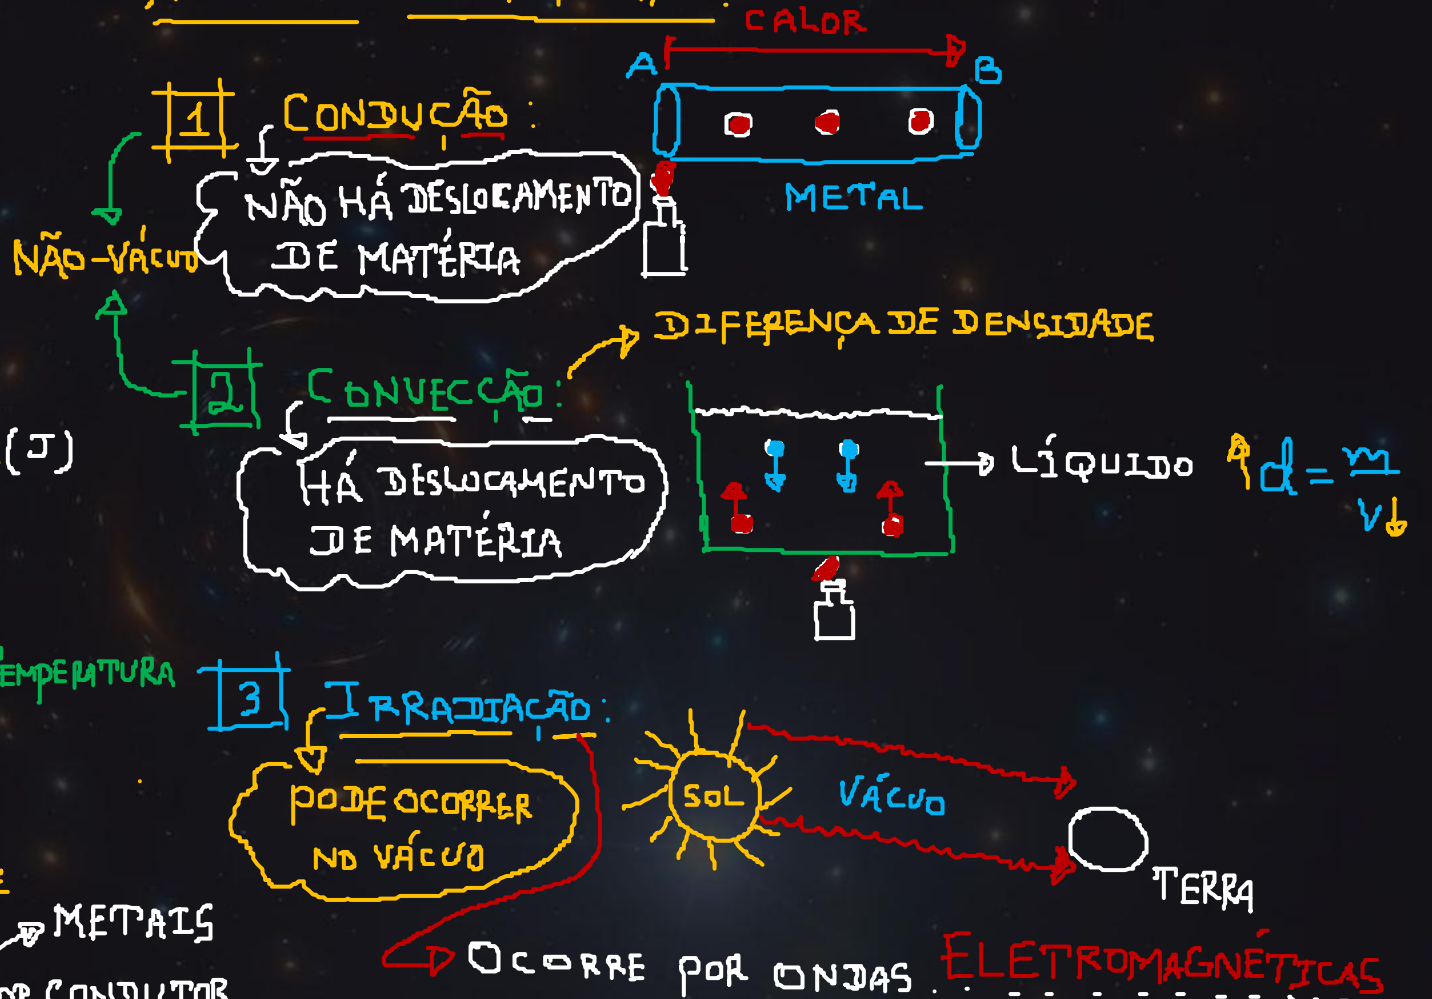 CALOR
A
B
1 CONDUÇÃO:
NÃO HÁ DESLOCAMENTO
DE MATÉRIA
METAL
NÃO-VÁCUO
DIFERENÇA DE DENSIDADE
2 CONVECÇÃO:
(J)
HÁ DESLOCAMENTO
DE MATÉRIA
LÍQUIDO
d = m
v
TEMPERATURA
3 IRRADIAÇÃO:
PODE OCORRER
NO VÁCUO
SOL
VÁCUO
TERRA
METAIS
OCORRE POR ONDAS ELETROMAGNÉTICAS
CONDUTOR